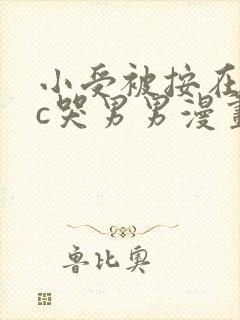 小受被按在
c哭男男漫畫
鲁比奥